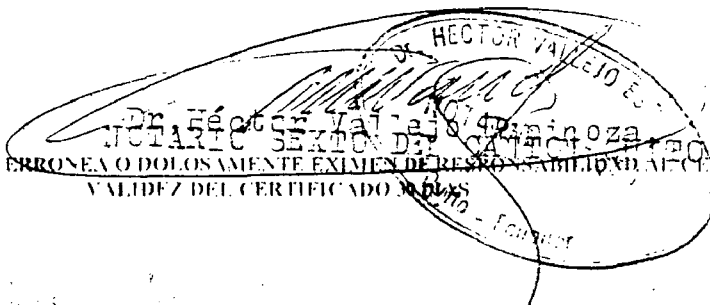 Dr. HECTOR VALLEJO ES
Dr Héctor Vallejo Espinoza
NOTARIO SEXTO DEL CANTON QUITO
ERRONEA O DOLOSAMENTE EXIMEN DE RESPONSABILIDAD AL CE
VALIDEZ DEL CERTIFICADO 30 DIAS
Quito - Ecuador